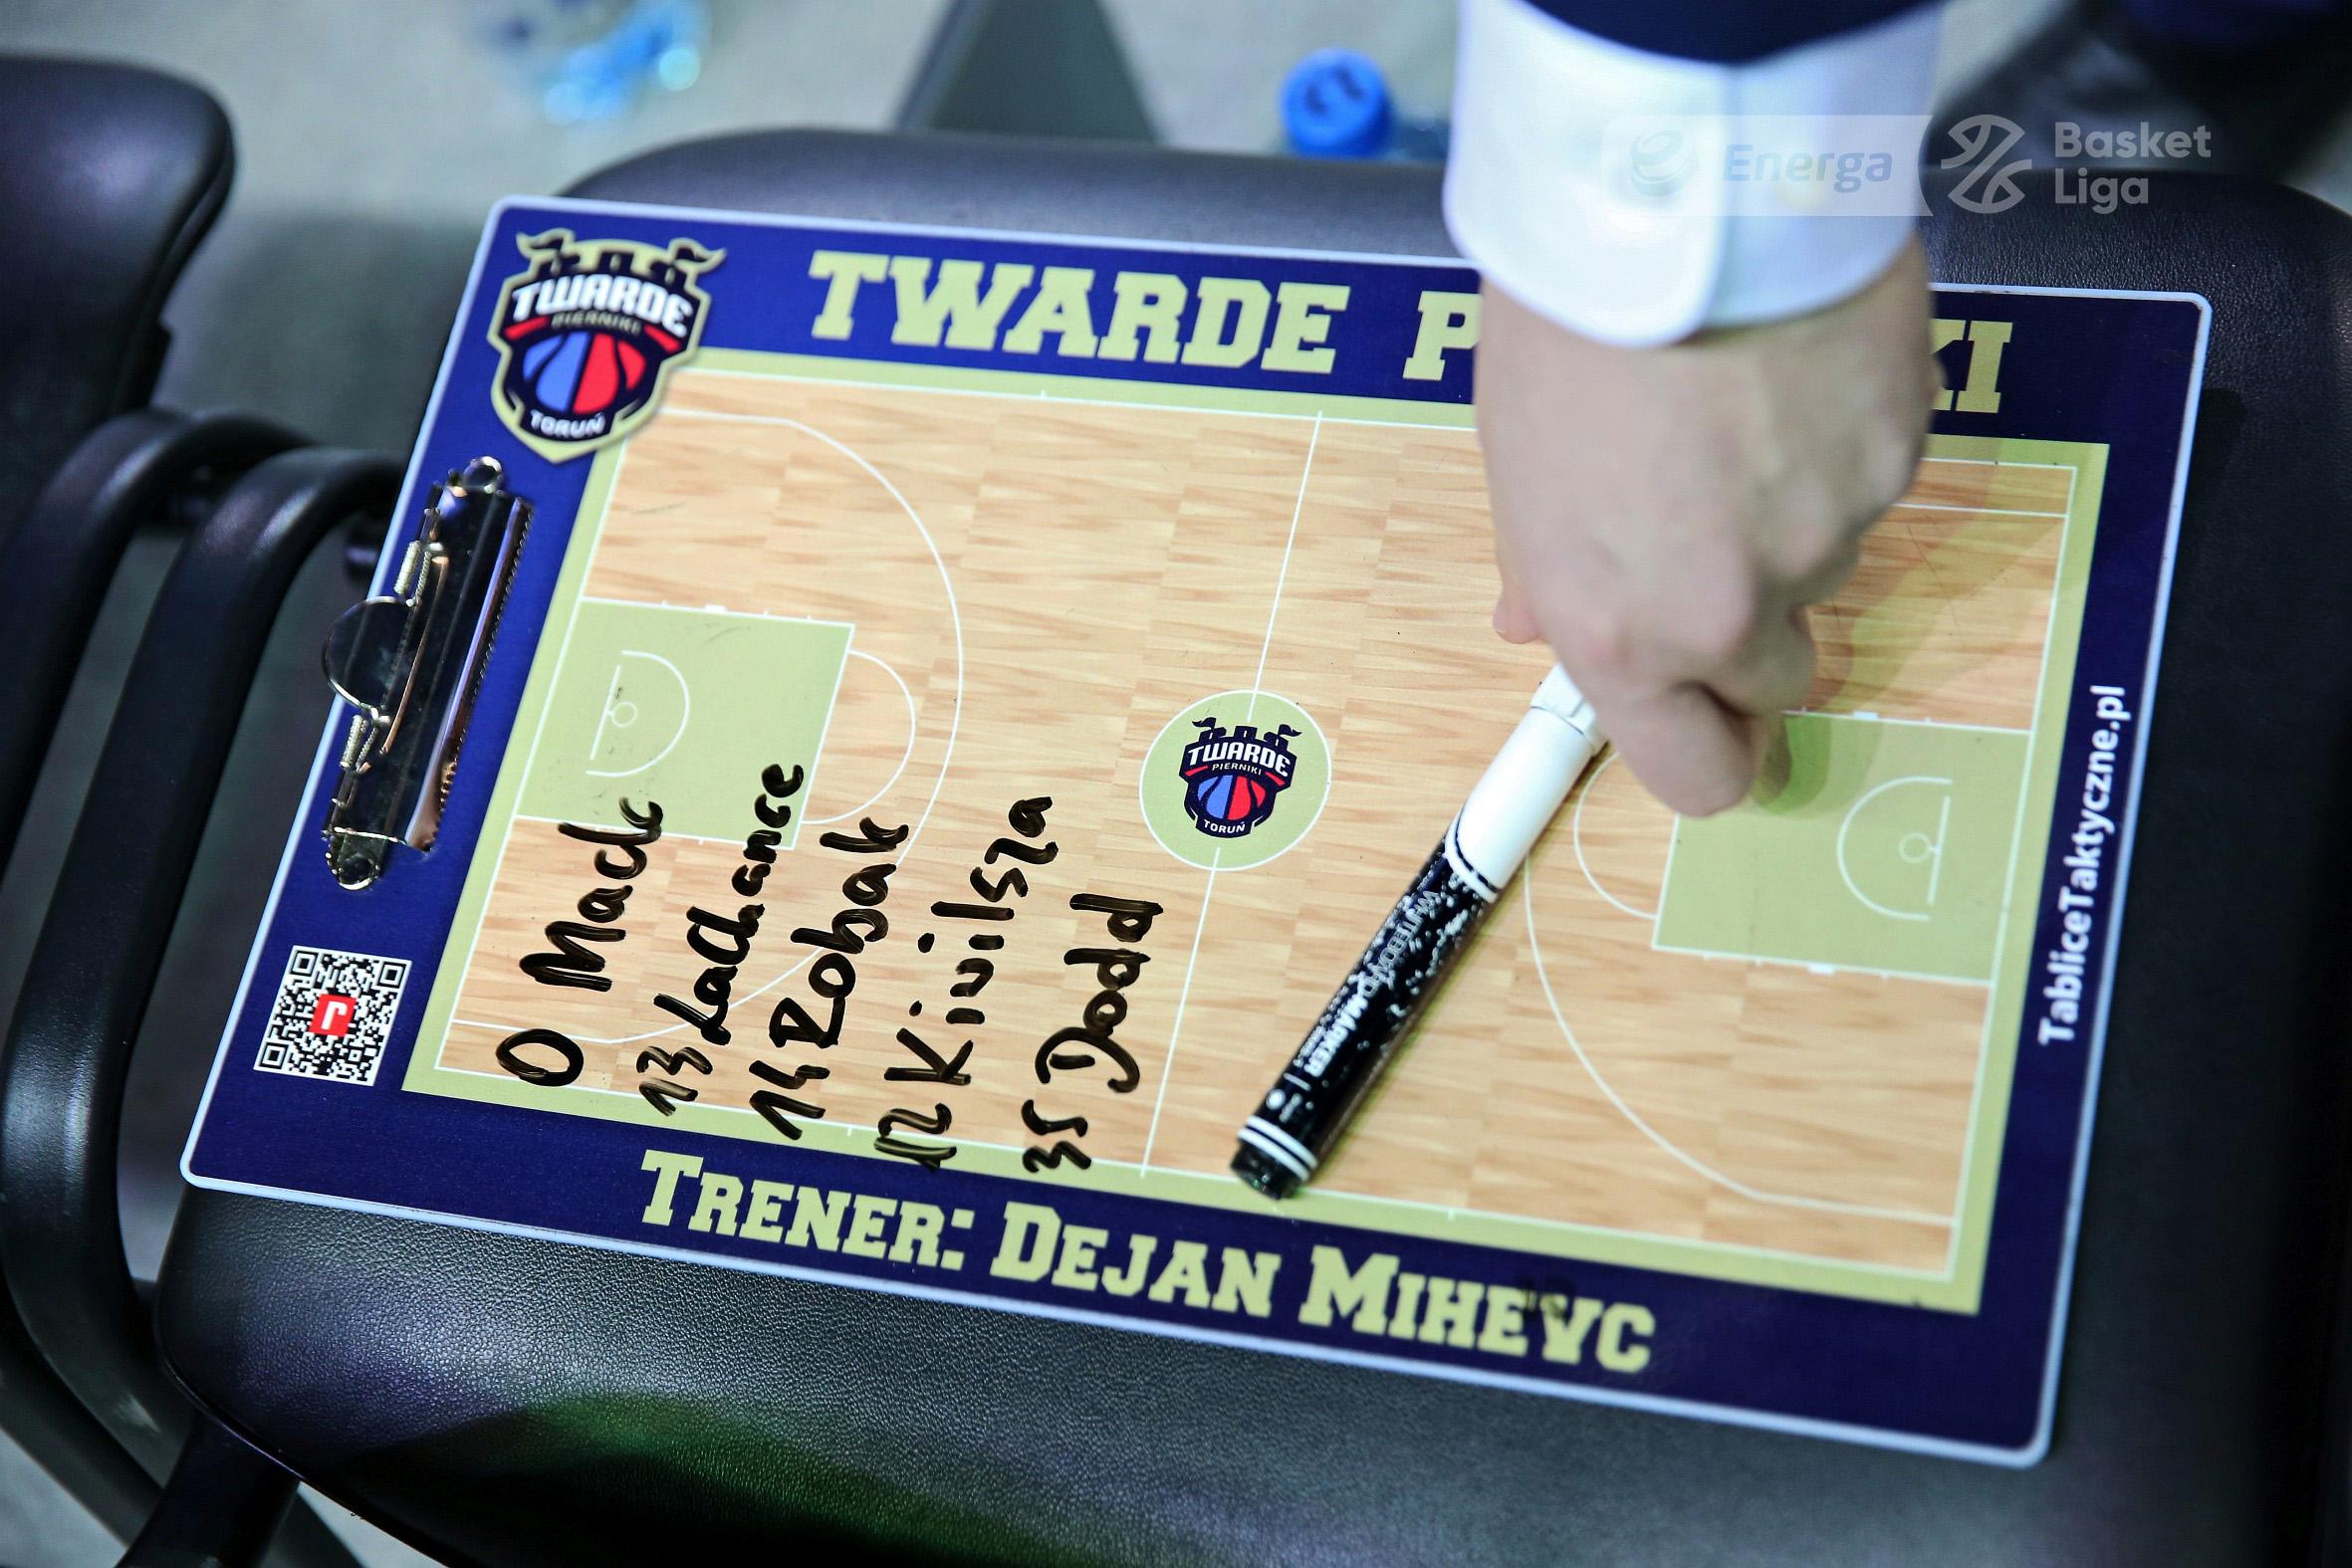 Energa
Basket
Liga
TWARDE
PIERNIKI
TORUŃ
TWARDE P KI
TWARDE
PIERNIKI
TORUŃ
0 Mack
13 Ladance
14 Robak
12 Kivilsza
35 Dodd
MARKER
TabliceTaktyczne.pl
TRENER: DEJAN MIHEVC